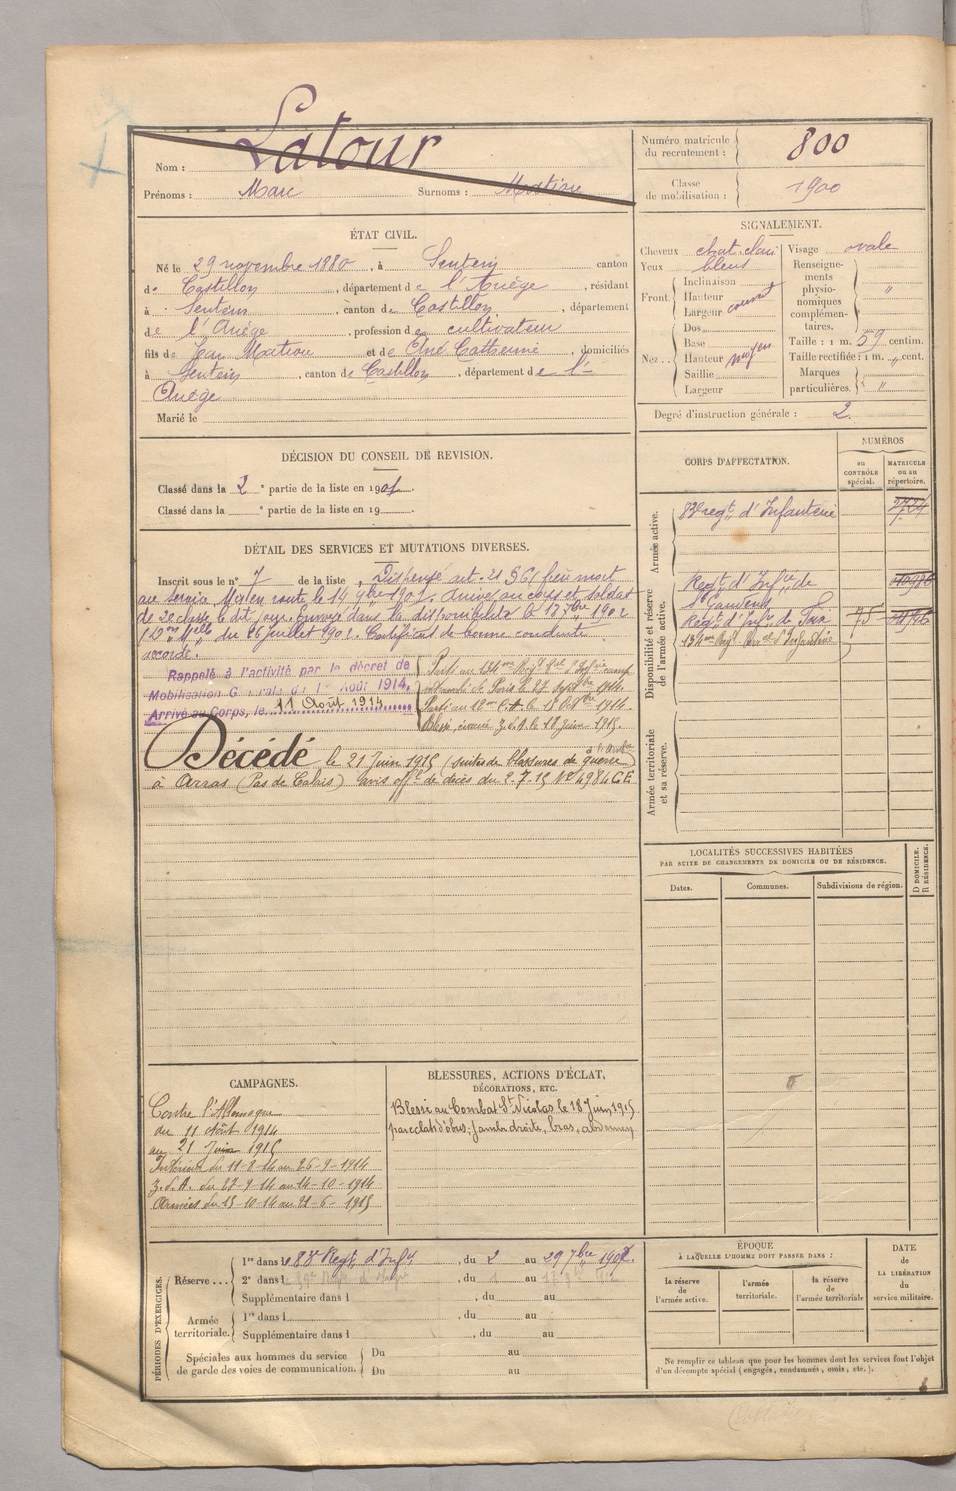 Nom : Latour
Prénoms : Marc Surnoms :
Numéro matricule du recrutement : 800
Classe de mobilisation : 1900
ÉTAT CIVIL.
Né le 29 novembre 1880, à Sentein canton
de Castillon, département de l'Ariège, résidant
à Sentein, canton de Castillon, département
de l'Ariège, profession de cultivateur
fils de Jean Martin et de Catherine, domiciliés
à Sentein, canton de Castillon, département de l'
Ariège
Marié le
SIGNALEMENT.
Cheveux chat. clair
Yeux bleus
Front. Inclinaison
Hauteur
Largeur couvert
Nez .. Dos
Base
Hauteur moyen
Saillie
Largeur
Visage ovale
Renseignements physionomiques complémentaires. "
Taille : 1 m. 59 centim.
Taille rectifiée : 1 m. " cent.
Marques particulières. "
Degré d'instruction générale : 2
DÉCISION DU CONSEIL DE REVISION.
Classé dans la 2e partie de la liste en 1901.
Classé dans la e partie de la liste en 19
DÉTAIL DES SERVICES ET MUTATIONS DIVERSES.
Inscrit sous le n° 7 de la liste Dispensé art. 21 frère mort
au service. Mis en route le 14 9bre 1901. Arrivé au corps et soldat
de 2e classe le dit jour. Envoyé dans la disponibilité le 1902
du 26 juillet 1902. Certificat de bonne conduite
accordé.
Rappelé à l'activité par le décret de
Mobilisation Générale du 1er Août 1914.
Arrivé au Corps, le 11 Août 1914
Parti au 134me Régt d'Infrie camp
retranché de Paris le 27 Septbre 1914.
Parti au le 15 8bre 1914.
Blessé, évacué Z.d.A. le 18 Juin 1915.
Décédé le 21 Juin 1915 (suites de blessures de guerre)
à Arras (Pas de Calais) avis offel de décès du 2.7.15 N° 4984 GE
CORPS D'AFFECTATION.
NUMÉROS
au CONTRÔLE spécial.
MATRICULE ou au répertoire.
Armée active.
83e régt d'Infanterie
Disponibilité et réserve de l'armée active.
Régt d'Infrie de
St Gaudens
Régt d'Infrie de Foix 75
134me Régt d'Infanterie
Armée territoriale et sa réserve.
LOCALITÉS SUCCESSIVES HABITÉES
PAR SUITE DE CHANGEMENTS DE DOMICILE OU DE RÉSIDENCE.
Dates.
Communes.
Subdivisions de région.
D DOMICILE.
R RÉSIDENCE.
CAMPAGNES.
Contre l'Allemagne
du 11 Août 1914
au 21 Juin 1915
Intérieur du 11-8-14 au 26-9-1914
Z.d.A. du 27-9-14 au 14-10-1914
Armées du 15-10-14 au 21-6-1915
BLESSURES, ACTIONS D'ÉCLAT,
DÉCORATIONS, ETC.
Blessé au Combat St Nicolas le 18 Juin 1915
par éclats d'obus ; jambe droite, bras, abdomen
PÉRIODES D'EXERCICES.
Réserve ... 1re dans le 83e Régt d'Infie, du 2 au 29 7bre 1908.
2e dans l , du 1 au
Supplémentaire dans l , du au
Armée territoriale. 1re dans l , du au
Supplémentaire dans l , du au
Spéciales aux hommes du service de garde des voies de communication. Du au
Du au
ÉPOQUE
À LAQUELLE L'HOMME DOIT PASSER DANS :
la réserve de l'armée active.
l'armée territoriale.
la réserve de l'armée territoriale
DATE DE LA LIBÉRATION du service militaire.
Ne remplir ce tableau que pour les hommes dont les services font l'objet
d'un décompte spécial (engagés, condamnés, omis, etc.).